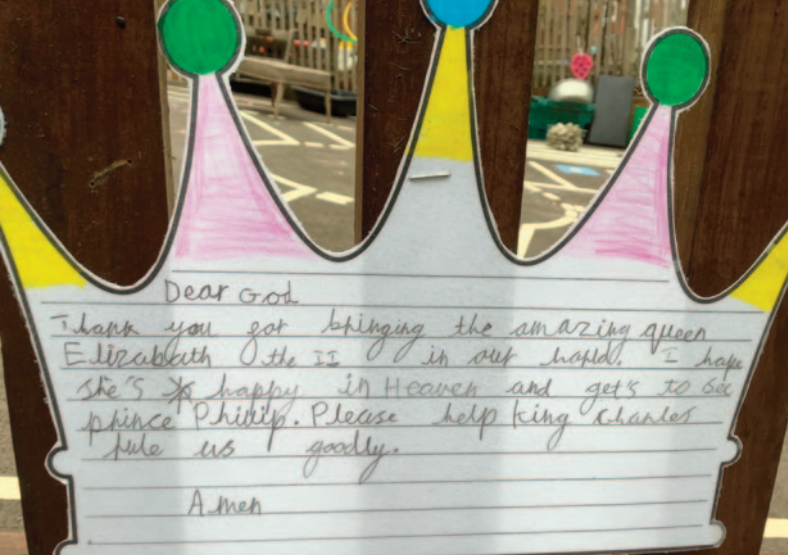 Dear God
Thank you for bringing the amazing queen
Elizabath the II in our world. I hope
she's happy in Heaven and get's to see
prince Phillip. Please help king Charles
rule us goodly.
Amen